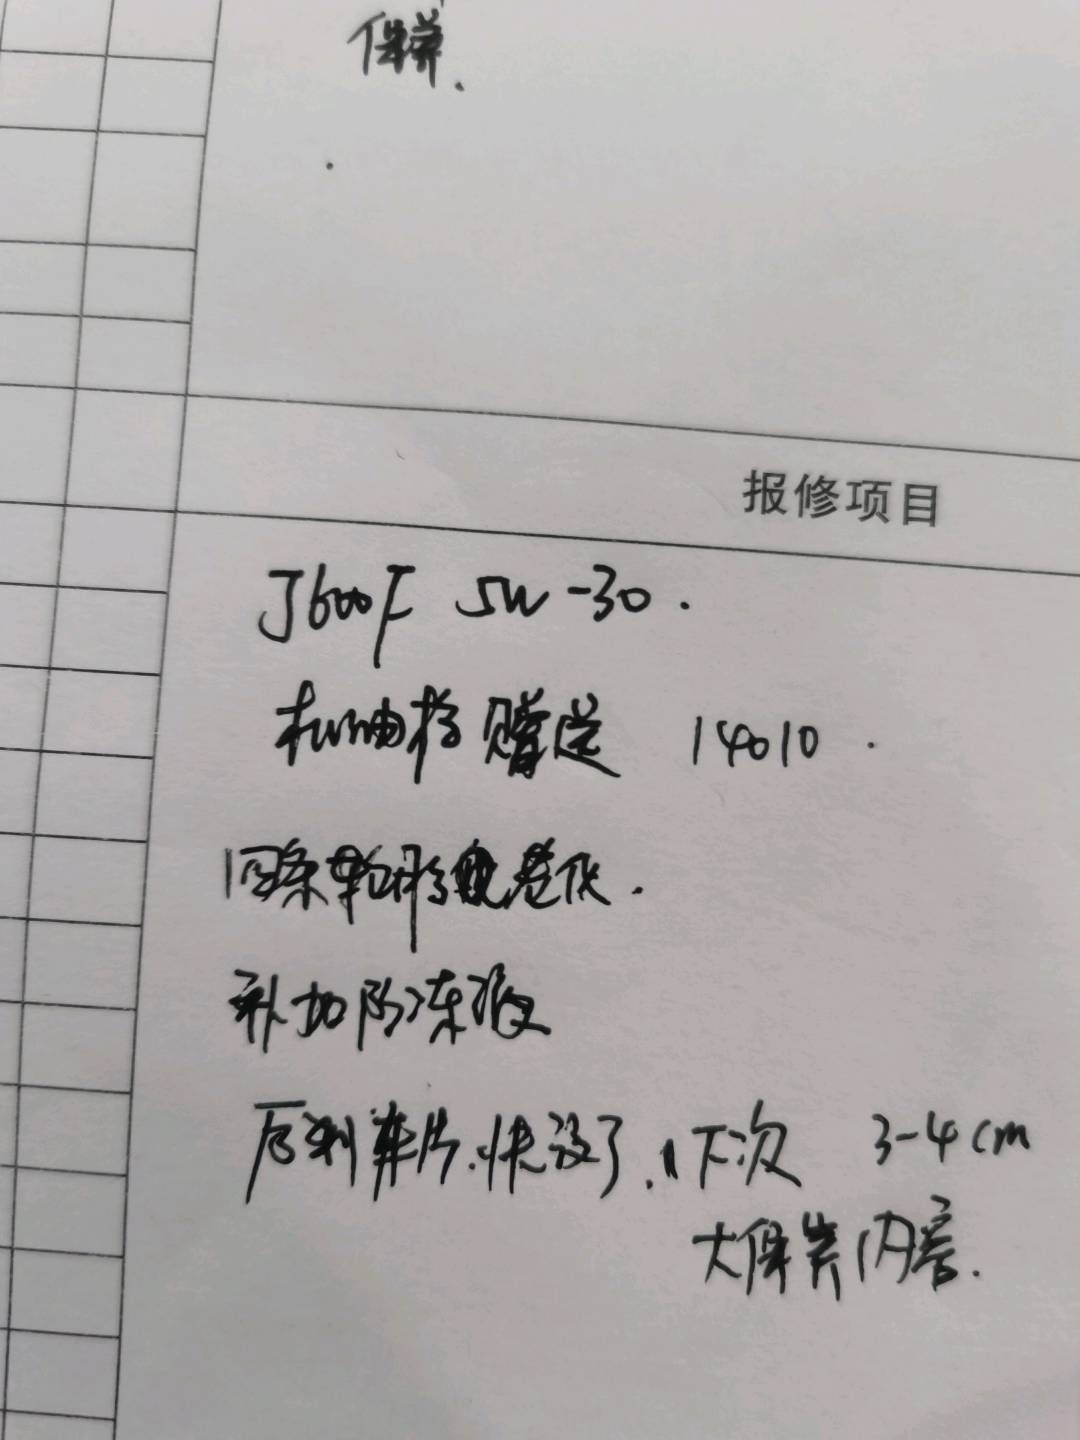 保养.
报修项目
J600F 5W-30.
机油格赠送 14010.
四条轮胎
补加防冻液
后刹车片.快没了. 下次 3-4cm
大保养内容.